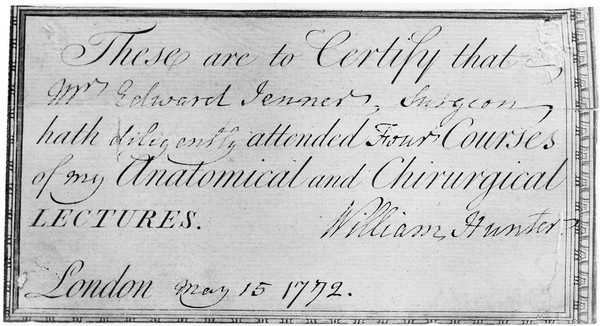 These are to Certify that
Mr Edward Jenner, Surgeon
hath diligently attended Four Courses
of my Anatomical and Chirurgical
LECTURES. William Hunter
London May 15 1772.